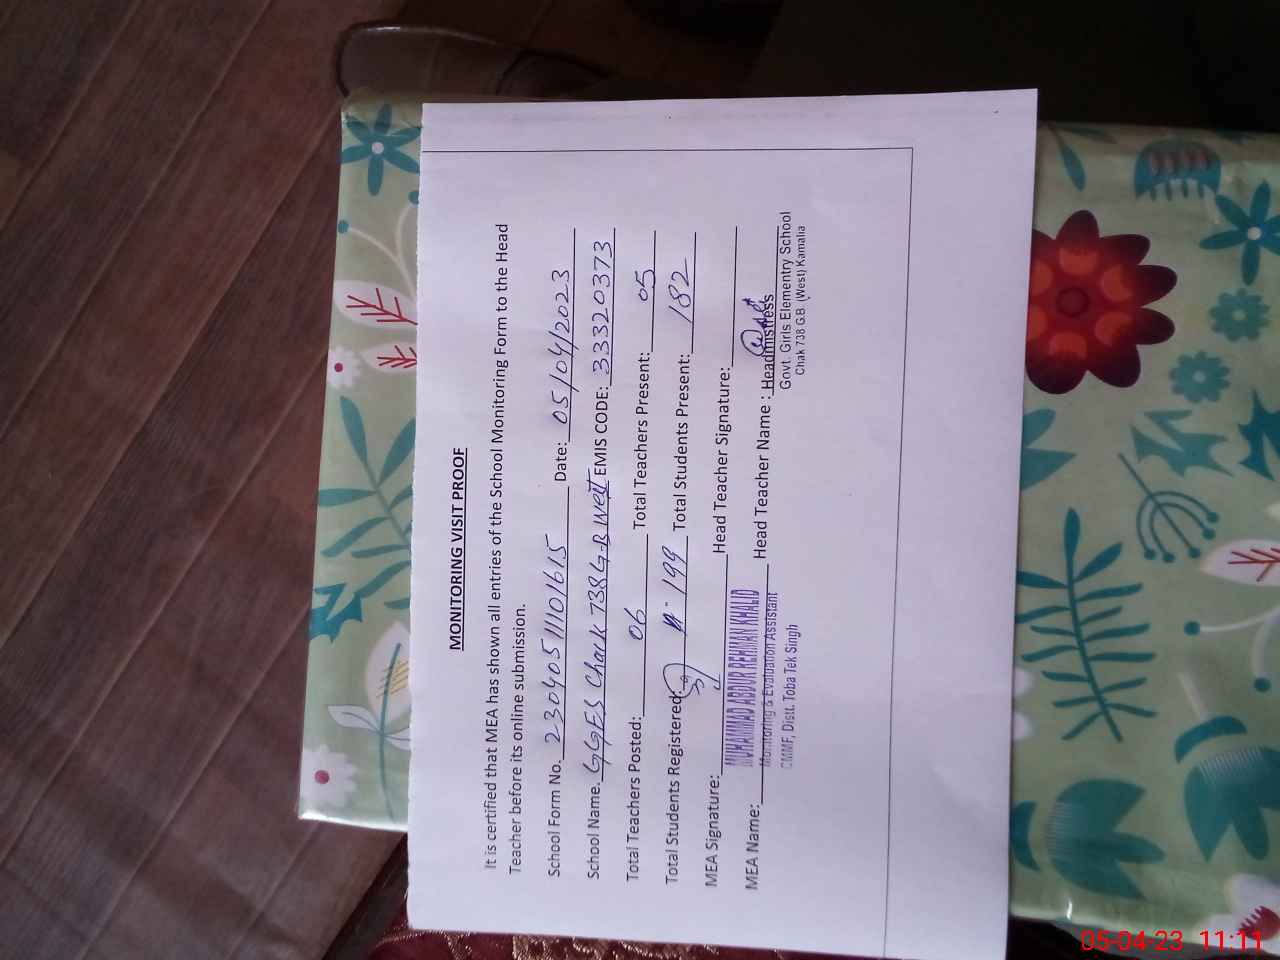 MONITORING VISIT PROOF
It is certified that MEA has shown all entries of the School Monitoring Form to the Head
Teacher before its online submission.
School Form No. 230405111101615 Date: 05/04/2023
School Name. GGES Chak 738 G.B West EMIS CODE: 33320373
Total Teachers Posted: 06 Total Teachers Present: 05
Total Students Registered: 199 Total Students Present: 182
MEA Signature: Head Teacher Signature:
MEA Name: MUHAMMAD ABDUR REHMAN KHALID Head Teacher Name : Headmistress
Monitoring & Evaluation Assistant Govt. Girls Elementry School
CMMF, Distt. Toba Tek Singh Chak 738 G.B. (West) Kamalia
05-04-23 11:11